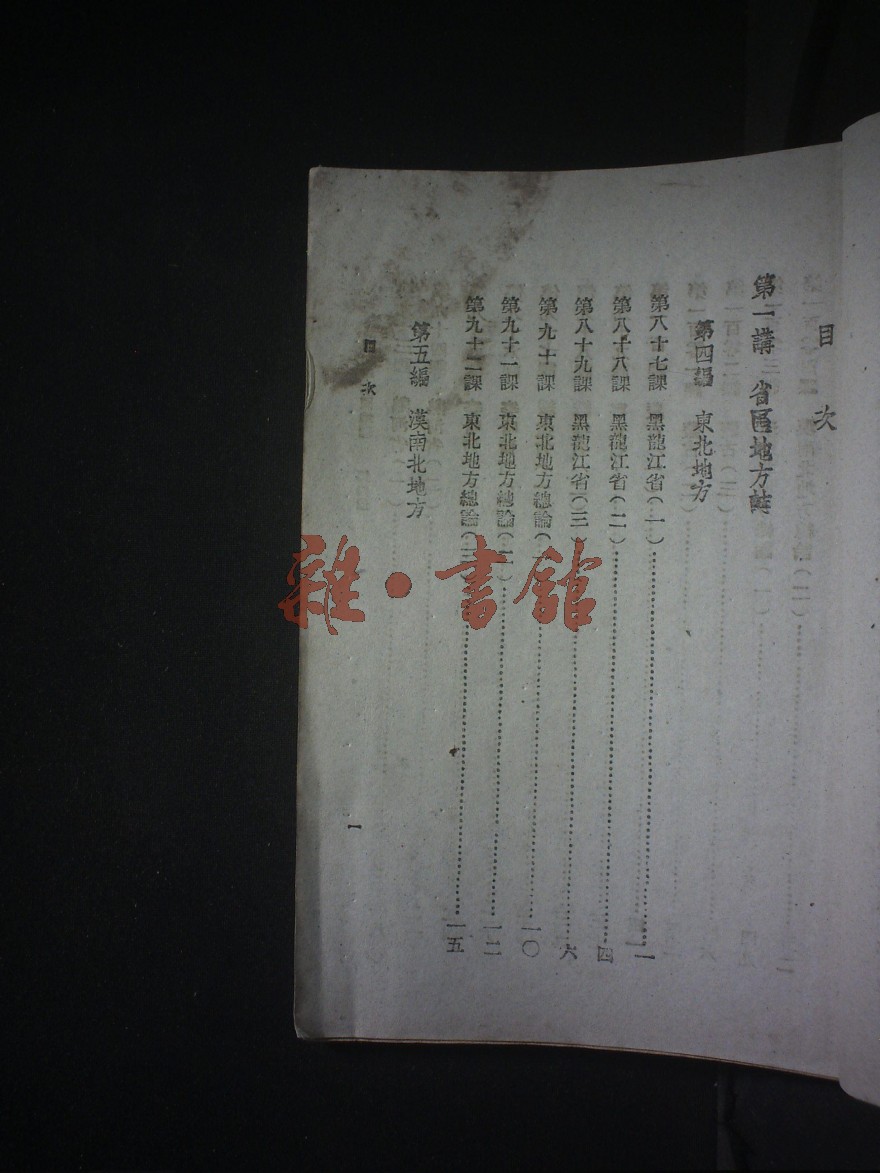 目次
第一講 省區地方誌
第四編 東北地方
第八十七課 黑龍江省(一)……一
第八十八課 黑龍江省(二)……四
第八十九課 黑龍江省(三)……六
第九十課 東北地方總論(一)……一〇
第九十一課 東北地方總論(二)……一二
第九十二課 東北地方總論(三)……一五
第五編 漠南北地方
目次
一
雜·書館